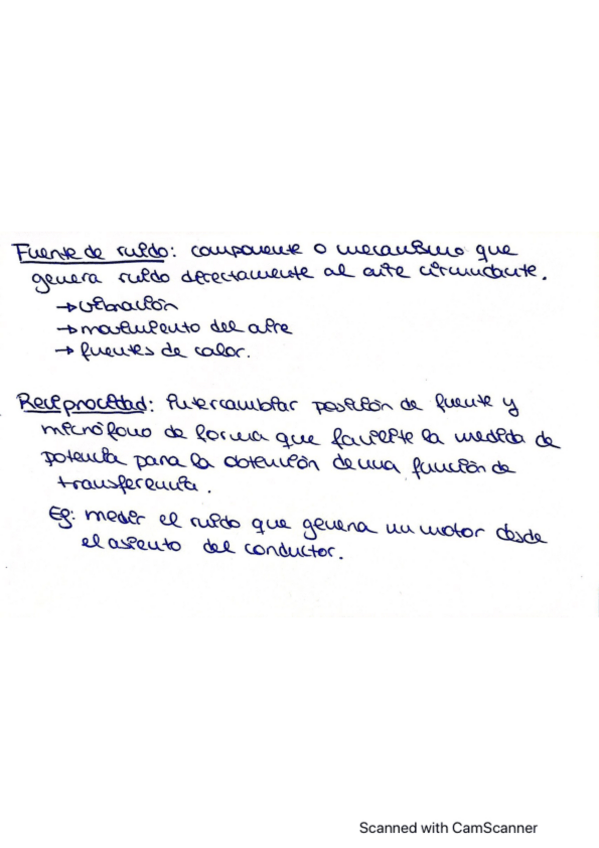 Fuente de ruido: componente o mecanismo que
genera ruido directamente al aire circundante.
→ vibración
→ movimiento del aire
→ fuentes de calor.
Reciprocidad: intercambiar posición de fuente y
micrófono de forma que facilite la medida de
potencia para la obtención de una función de
transferencia.
Eg: medir el ruido que genera un motor desde
el asiento del conductor.
Scanned with CamScanner